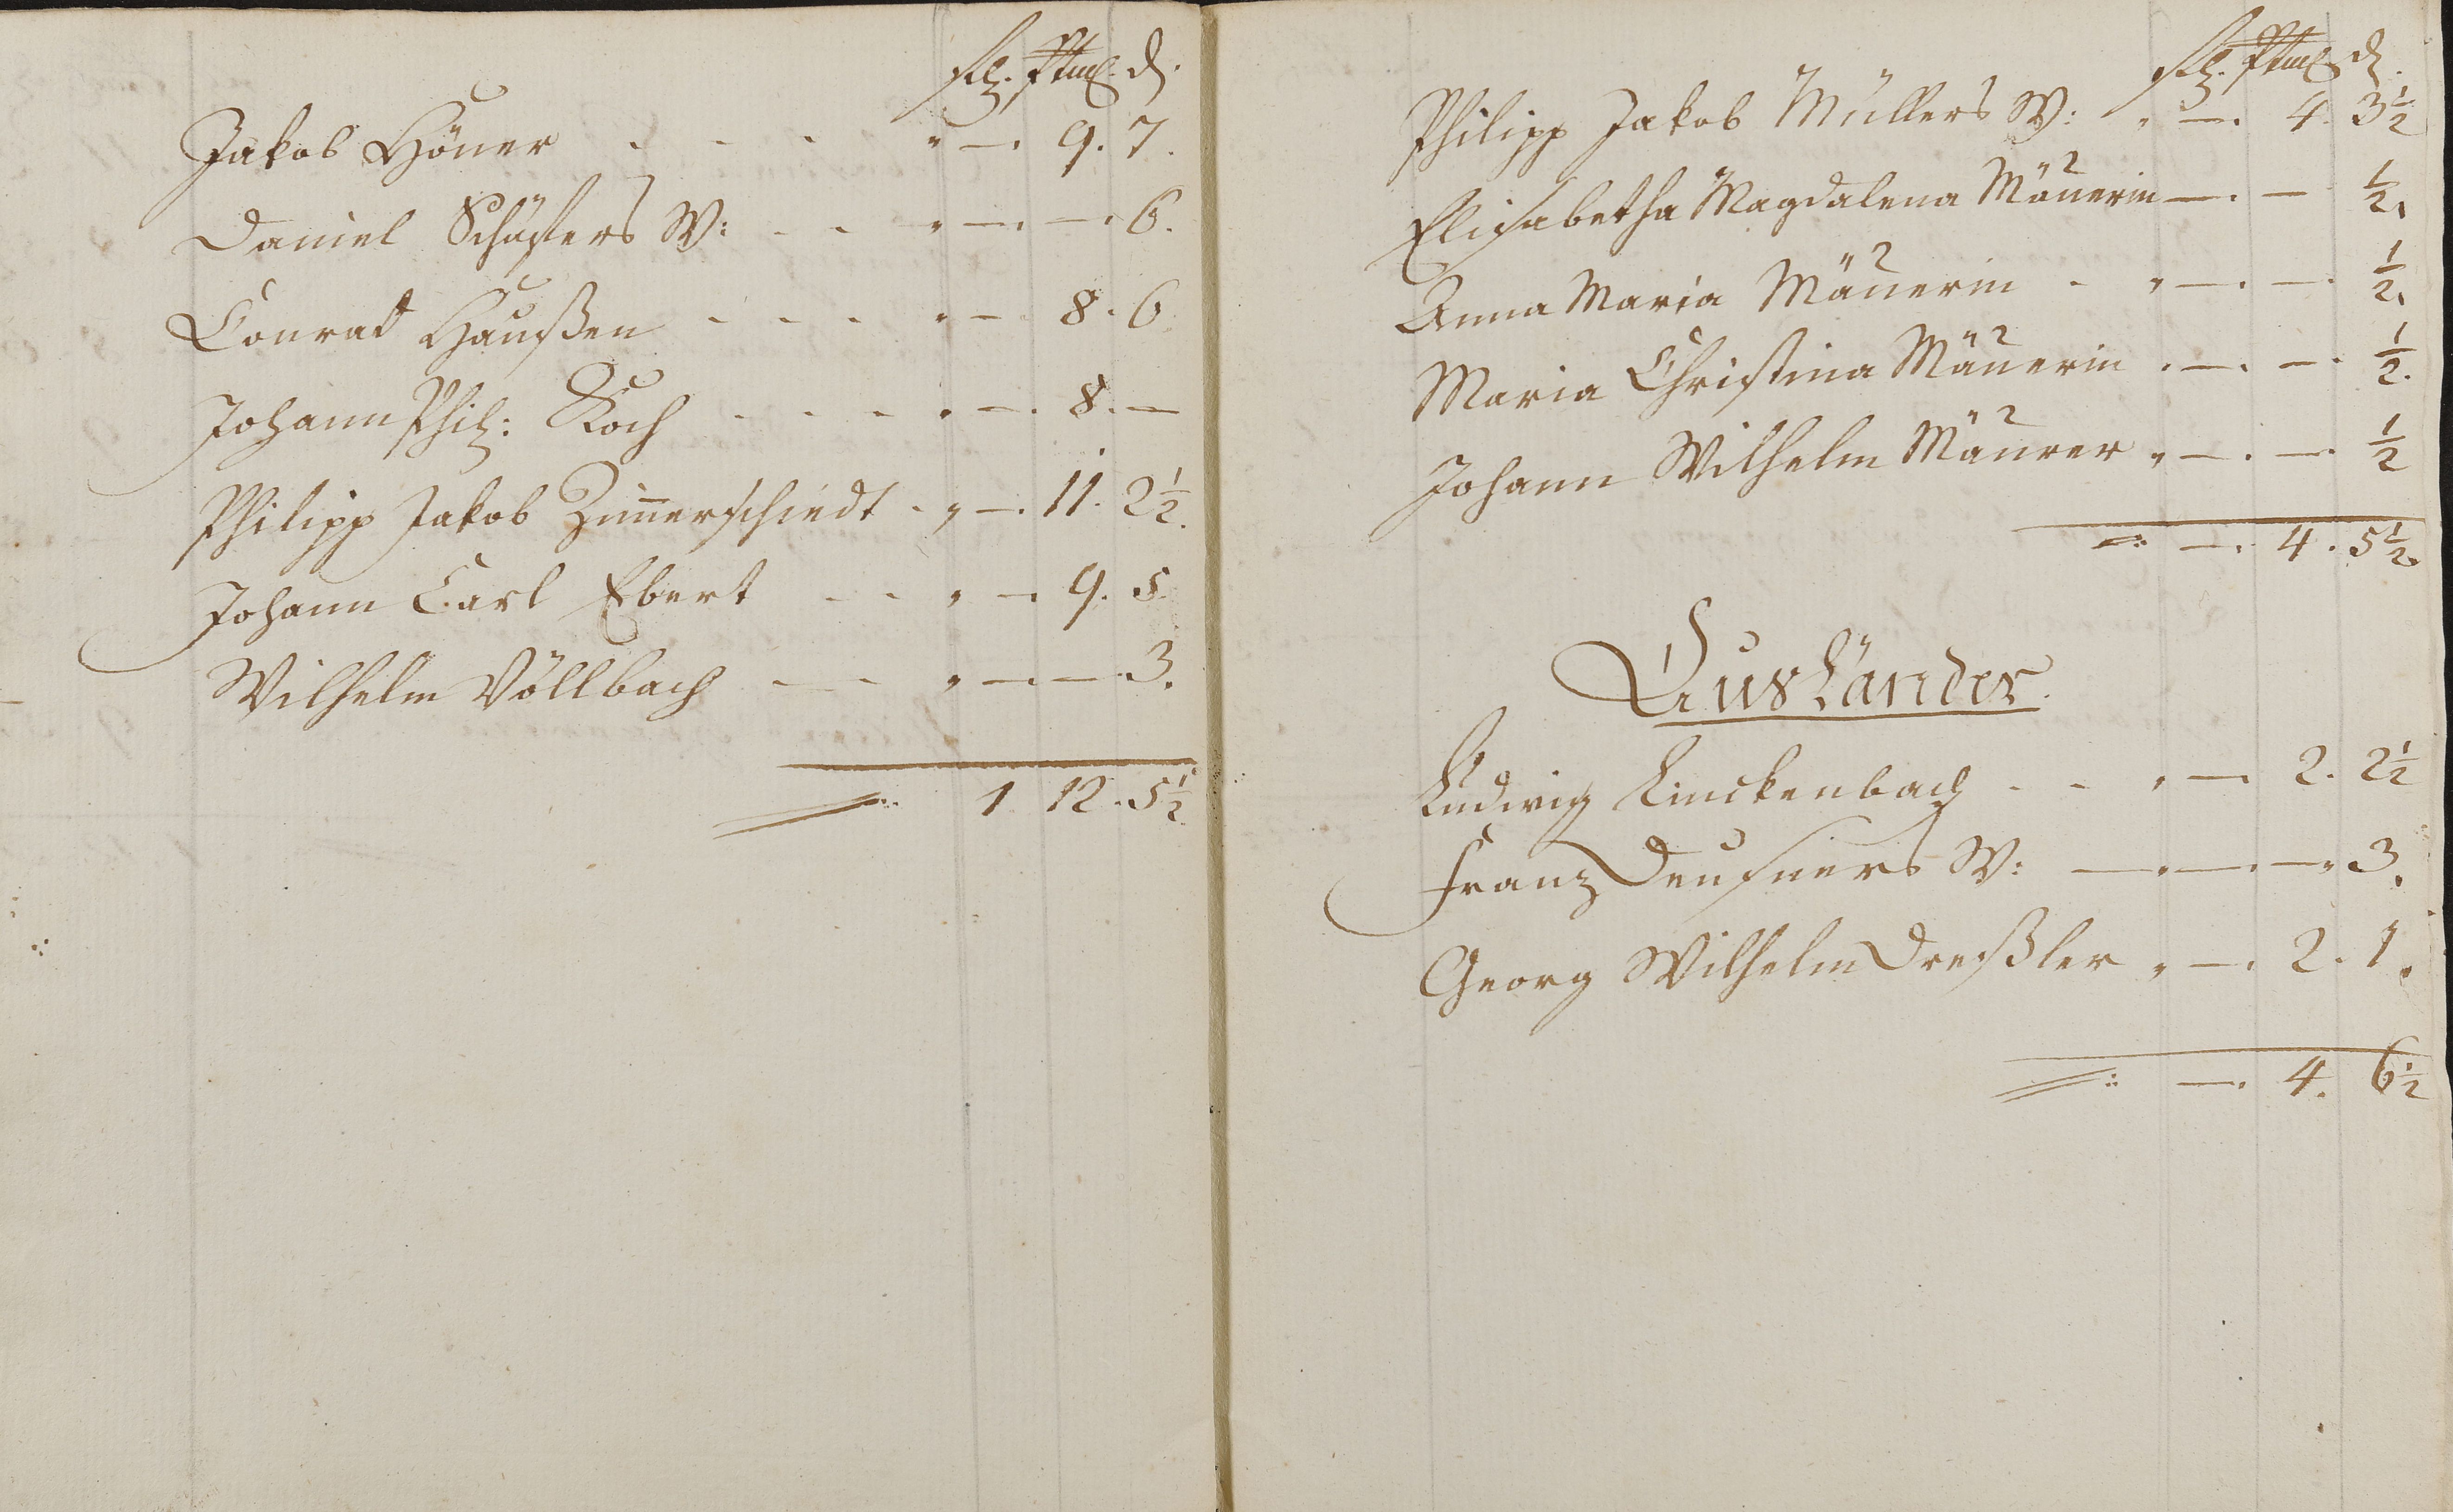 Jakob Höner . . . " —. 9. 7.
Daniel Schüsters W: - - " —. —. 6.
Conrad Haußen - - - " — 8. 6
Johann Phil: Koch - - - " —. 8. —
Philipp Jakob Zim̄erschiedt - " —. 11. 2½.
Johann Carl Ebert - - " —. 9. 5.
Wilhelm Völlbach — - " —. — 3.
1 12. 5½.
d.
Philipp Jakob Müllers W: " —. 4. 3½
Elisabetha Magdalena Mäuerin —. — ½.
Anna Maria Mäuerin - " —. —. ½.
Maria Christina Mäuerin " —. —. ½.
Johann Wilhelm Mäurer " —. —. ½
—. 4. 5½.
Ausländer.
Ludwig Linckenbach - - " —. 2. 2½
Franz Deusners W: —. —. — " 3.
Georg Wilhelm Dreßler " —. 2. 1.
—. 4. 6½